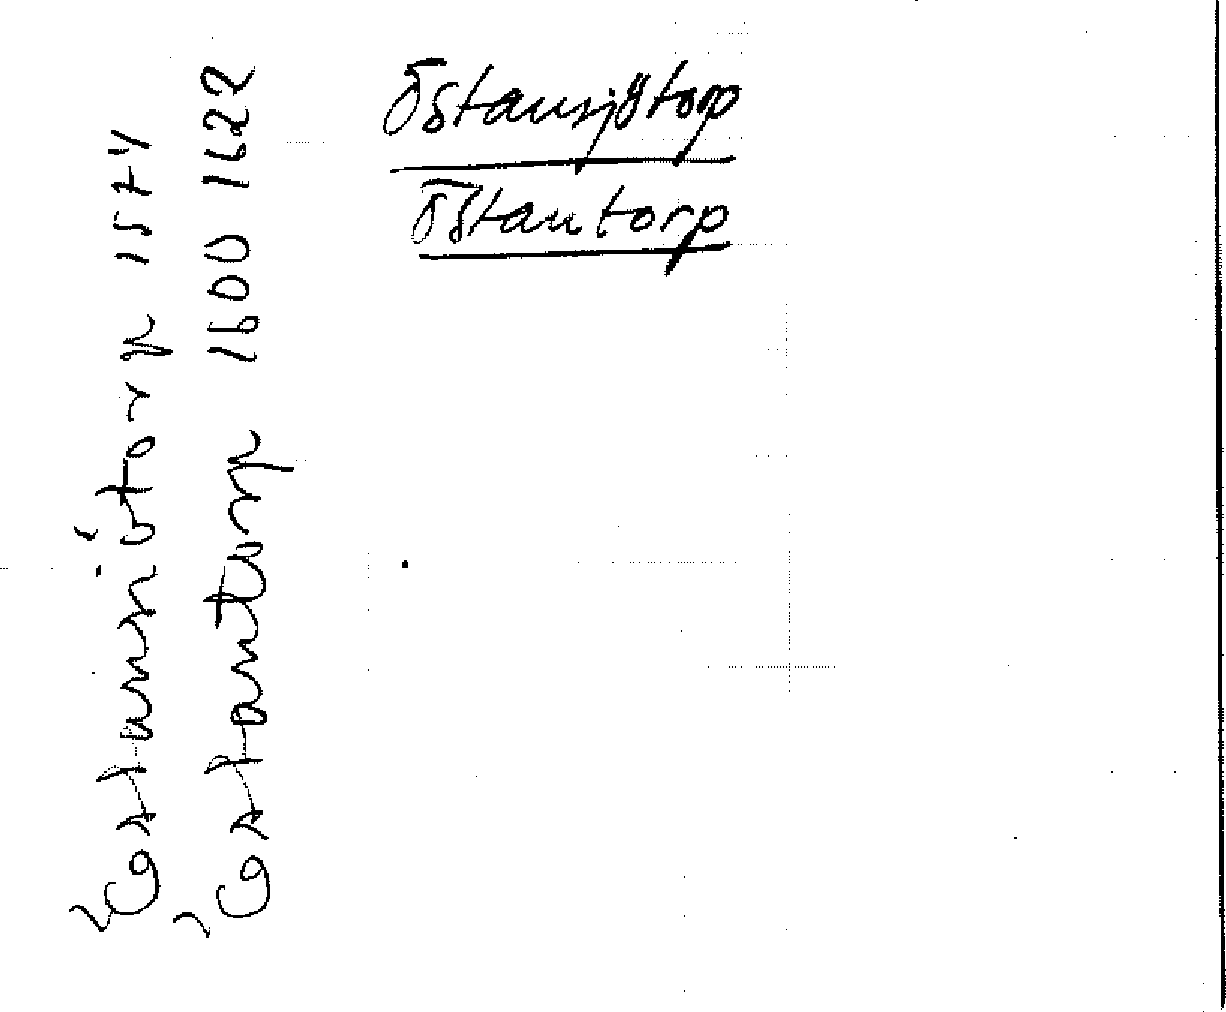 Östansjötorp
Östantorp
Östansiötorp 1574
Östantorp 1600 1622